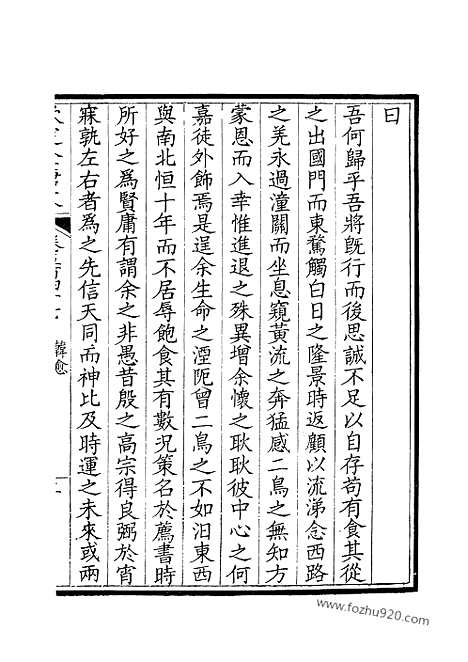 曰
吾何歸乎吾將旣行而後思誠不足以自存苟有食其從
之出國門而東騖觸白日之隆景時返顧以流涕念西路
之羌永過潼關而坐息窺黃流之奔猛感二鳥之無知方
蒙恩而入幸惟進退之殊異增余懷之耿耿彼中心之何
嘉徒外飾焉是逞余生命之湮阨曾二鳥之不如汨東西
與南北恒十年而不居辱飽食其有數況策名於薦書時
所好之為賢庸有謂余之非愚昔殷之高宗得良弼於宵
寐孰左右者為之先信天同而神比及時運之未來或兩
韓愈
www.fozhu920.com